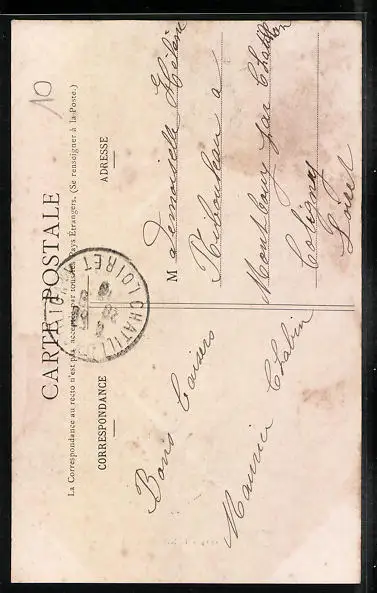 10
CARTE POSTALE
La Correspondance au recto n'est pas acceptée par tous les Pays Étrangers. (Se renseigner à la Poste.)
CORRESPONDANCE
ADRESSE
CHATILLON
LOIRET
Bons baisers
Maurice Chalin
Mademoiselle Hélène
Ribouleau a
Montbouy par Chatillon
Coligny
Loiret